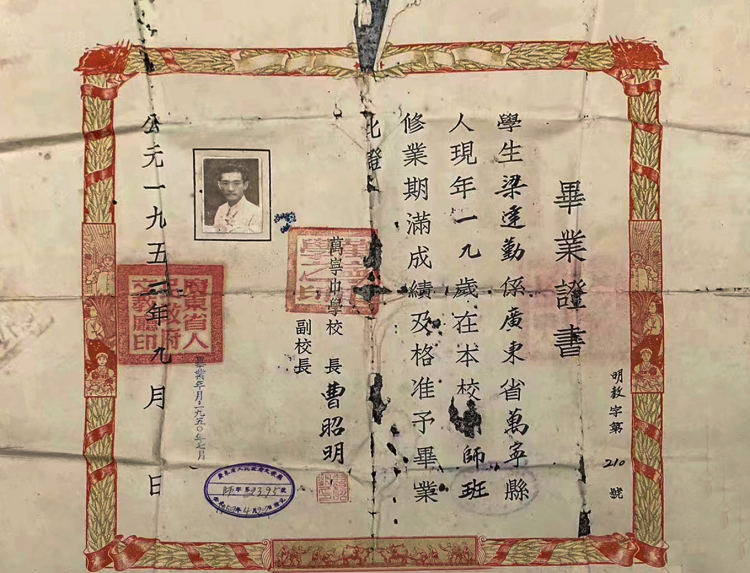 畢業證書
明教字第210號
學生梁運勤係廣東省萬寧縣
人現年一九歲在本校師班
修業期滿成績及格准予畢業
此證
萬寧中學校長曹昭明
副校長
公元一九五一年九月日
畢業年月一九五〇年七月
廣東省人民政府文教廳印